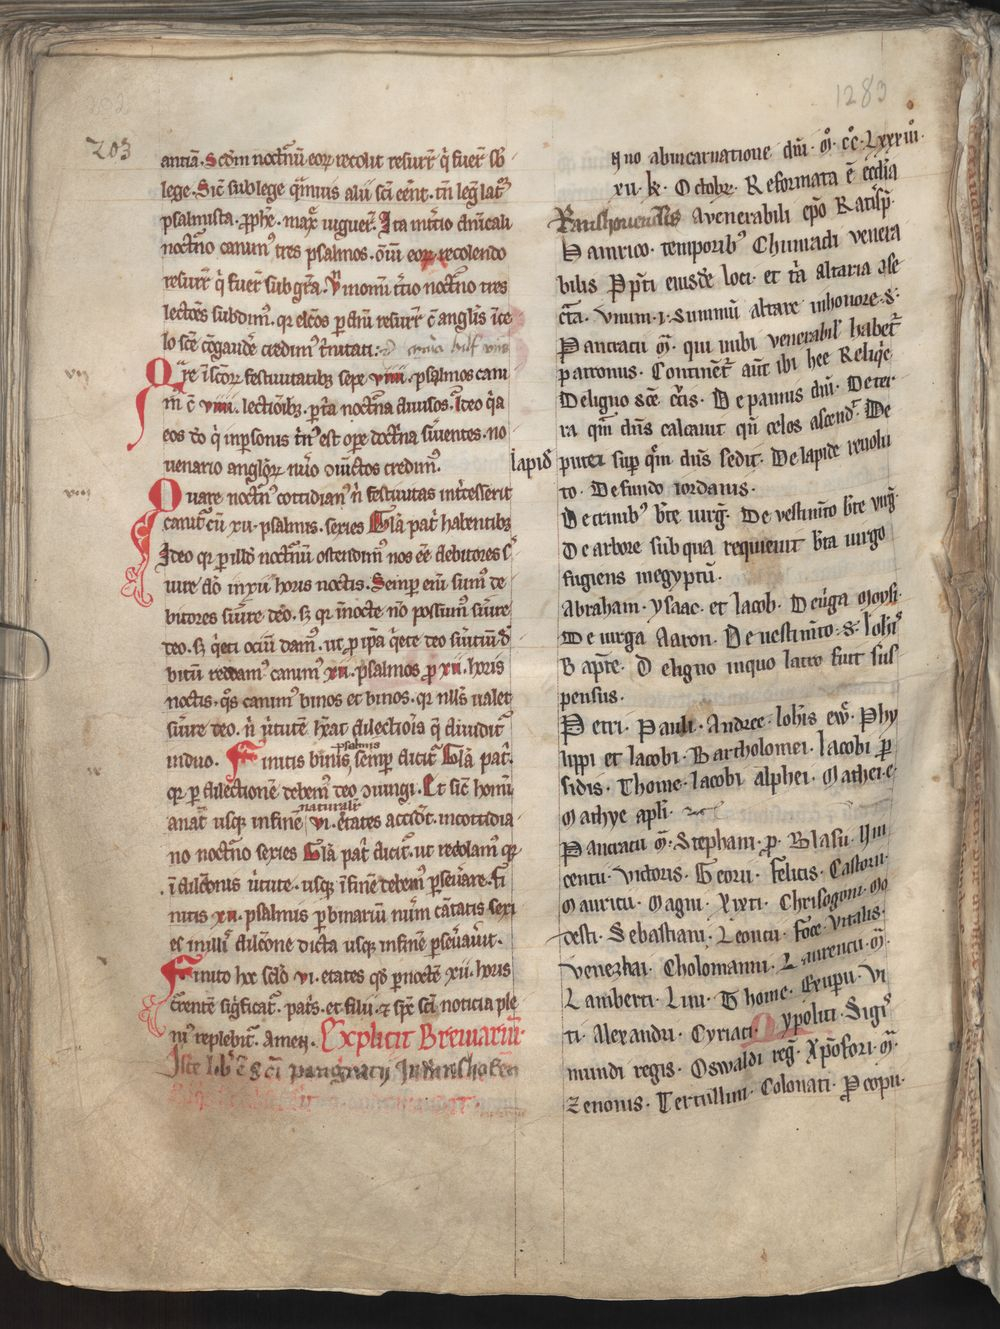 203
1283
antiā. Scd̄m noctnū eoꝝ recolit resurr̄ q̇ fuer̄ sb̄
lege. Sic̄ sub lege q̄mvis alii sc̄i eēnt. tn̄ leg̃ lat᷑
psalmista. ꝓph̄e. max̄ viguer̄. Ita in t̄cio dn̄icali
noct̄no canim᷒ tres psalmos. ōīu eoꝝ recolendo
resurr̄ q̇ fuer̄ sub gr̄a. tres
lectōes subdim᷒. qꝛ el̄cos
lo sc̄e c̄gaudē credim᷒ t̄nitati.
vij
Qare ī sc̄oꝝ festivitatibꝫ sepe viiii. psalmos cani
m᷒ c̄ viiii. lectiōibꝫ. p̲ t̄a noct̄na divisos. Ideo q̇a
eos
venario angl̄oꝝ nūo ꝯiūctos credim᷒.
viii
Quare noct̄n᷒ cottidian᷒ n̄ festivitas int̄esserit
canit᷑ cū xii. psalmis. sexies Gl̄a pat̄ habentibꝫ
Ideo qꝛ p̲ illū noct̄nū ostendim᷒ nos eē debitores s̄
vire dō in xii horis noctis. Semp̲ enī sum᷒ de
bitores s̄vire deo. sꝫ qꝛ ī nocte nō possum᷒ s̄vire
deo. sꝫ q̇eti ociū dam᷒. ut ꝓ ip̄a q̇ete deo s̄vitiū d̄
bitū reddam᷒ canim᷒ xii. psalmos ꝓ xii. horis
noctis. q̄s canim᷒ binos et binos. qꝛ nll̄s valet
s̄vire deo. n̄ v̄tutē hēat dilectiōis q̄ dividit᷑
in duo. Finitis binis psalmis semp̲ dicit᷑ Gl̄a pat̄.
qꝛ p̲ dilectionē debem᷒ deo ꝯiungi. Et sic̄
usqꝫ in finē naturalē vi. etates accid̄t. in cottidia
no noct̄no sexies Gl̄a pat̄ dicit᷑. ut recolam᷒ qꝛ
ī dil̄cōnis v̄tute. usqꝫ ī finē debem᷒ p̲sev̄are. Fi
nitis xii. psalmis p̲ binariū nūm cātatis sexi
es dil̄cōne dicta usqꝫ in finē p̲sev̄av̄it.
Finito hoc vi. etates p̲ noctē xii. horis
sig̃ficat᷑. pat̄s. et filii. ⁊ sp̄c sc̄i noticia ple
ni᷒ replebit᷑. Amen. Explicit Breviariū.
Iste lib̄ ē sc̄i pangracij In Ranshofen
Anno ab incarnatione dn̄i. m̊. cc̊. Lxxxiii̊.
xii. k̄. Octobr̄. Reformata ē eccl̄ia
Ranshovensis a venerabili ep̄o Ratisp̄.
Hainrico. temporib᷒ Chunradi venera
bilis P̲p̄ti eiusdē loci. et t̄a altaria ꝯse
c̄ta. Vnum .i. summū altare in honore. S.
Pancratii m̄. qui inibi venerabil᷒ habet᷑
patronus. Continēt᷑ aūt ibi hee Reliq̇e
De ligno sc̄e c̄cis. De pannis dn̄i. De ter
ra q̄m dn̄s calcavit qn̄ celos ascend᷑. De
lapid̄ putei sup̲ q̄m dn̄s sedit. De lapide revolu
to. De fundo iordanis.
De crinib᷒ bt̄e virg̃. De vestim̄to bt̄e virg̃.
De arbore sub qua requievit bt̄a virgo
fugiens in egyptū.
Abraham. ysaac. et Iacob. De v̄ga Moysi.
De virga Aaron. De vestim̄to. S. Ioh̄is
Bapt̄e. De ligno in quo latro fuit sus
pensus.
Petri. Pauli. Andree. Ioh̄is ew̄. Phy
lippi et Iacobi. Bartholomei. Iacobi p̲
sidis. Thome. Iacobi alphei. Mathei. e
Mathye apl̄i.
Pancratii m̄. Stephani. p̄. Blasii. Uin
centii. Victoris. Georii. Felicis. Castorii.
Mauricii. Magni. Xixti. Chrisogoni. Mo
desti. Sebastiani. Leoncii. Foce. Vitalis.
Venezlai. Cholomanni. Laurencii. m̄.
Lamberti. Lini. Thome. Exupii. Vi
ti. Alexandri. Cyriaci. Ypoliti. Sigis
mundi regis. Oswaldi reg̃. Xp̄ofori. m̄.
Zenonis. Tertullini. Colonati. Procopii.